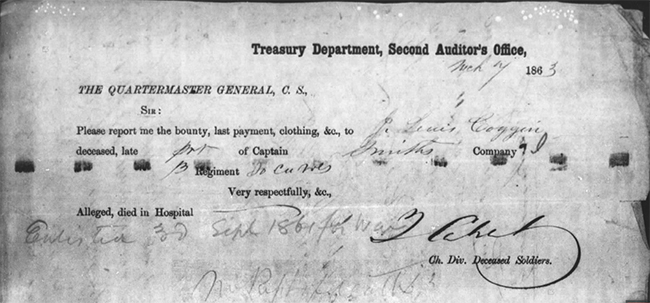 Treasury Department, Second Auditor's Office,
Mch 7 1863
THE QUARTERMASTER GENERAL, C. S.,
SIR:
Please report me the bounty, last payment, clothing, &c., to J. Lewis Coggin
deceased, late prt of Captain Smiths Company
13 Regiment No
Very respectfully, &c.,
Alleged, died in Hospital
Enlisted 3d Sept 1861 for War
Ch. Div. Deceased Soldiers.